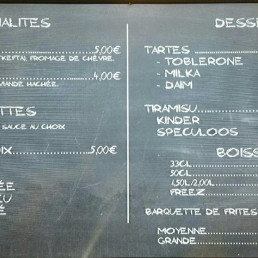 ALITES
5,00€
KEFTAL FROMAGE DE CHÈVRE
4,00€
ANDE HACHÉE
TTES
SAUCE AU CHOIX
IX 5,00€
ÉE
U
É
DESSE
TARTES
- TOBLERONE
- MILKA
- DAIM
TIRAMISU
KINDER
SPECULOOS
BOISS
33CL
50CL
1,50L/2,00L
FREEZ
BARQUETTE DE FRITES
MOYENNE
GRANDE